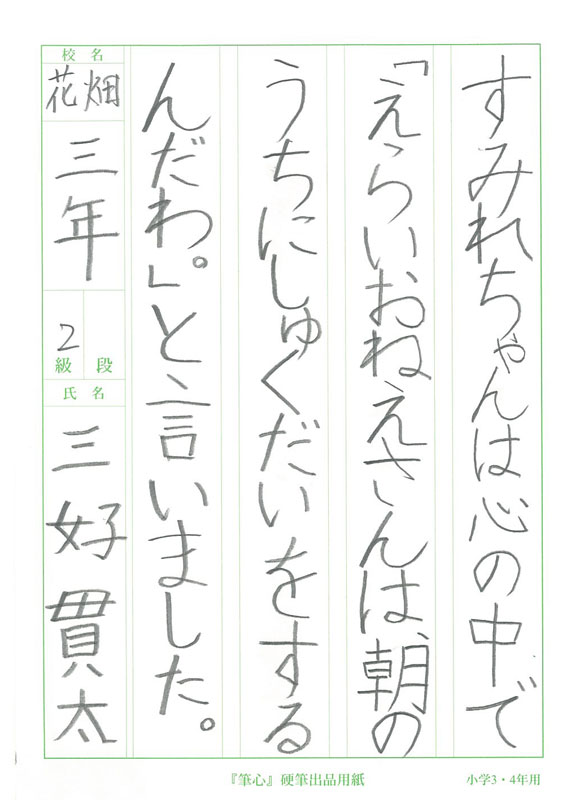 すみれちゃんは心の中で
「えらいおねえさんは、朝の
うちにしゅくだいをする
んだわ。」と言いました。
校名
花畑
三年
2
級 段
氏名
三好貫太
『筆心』硬筆出品用紙
小学3・4年用